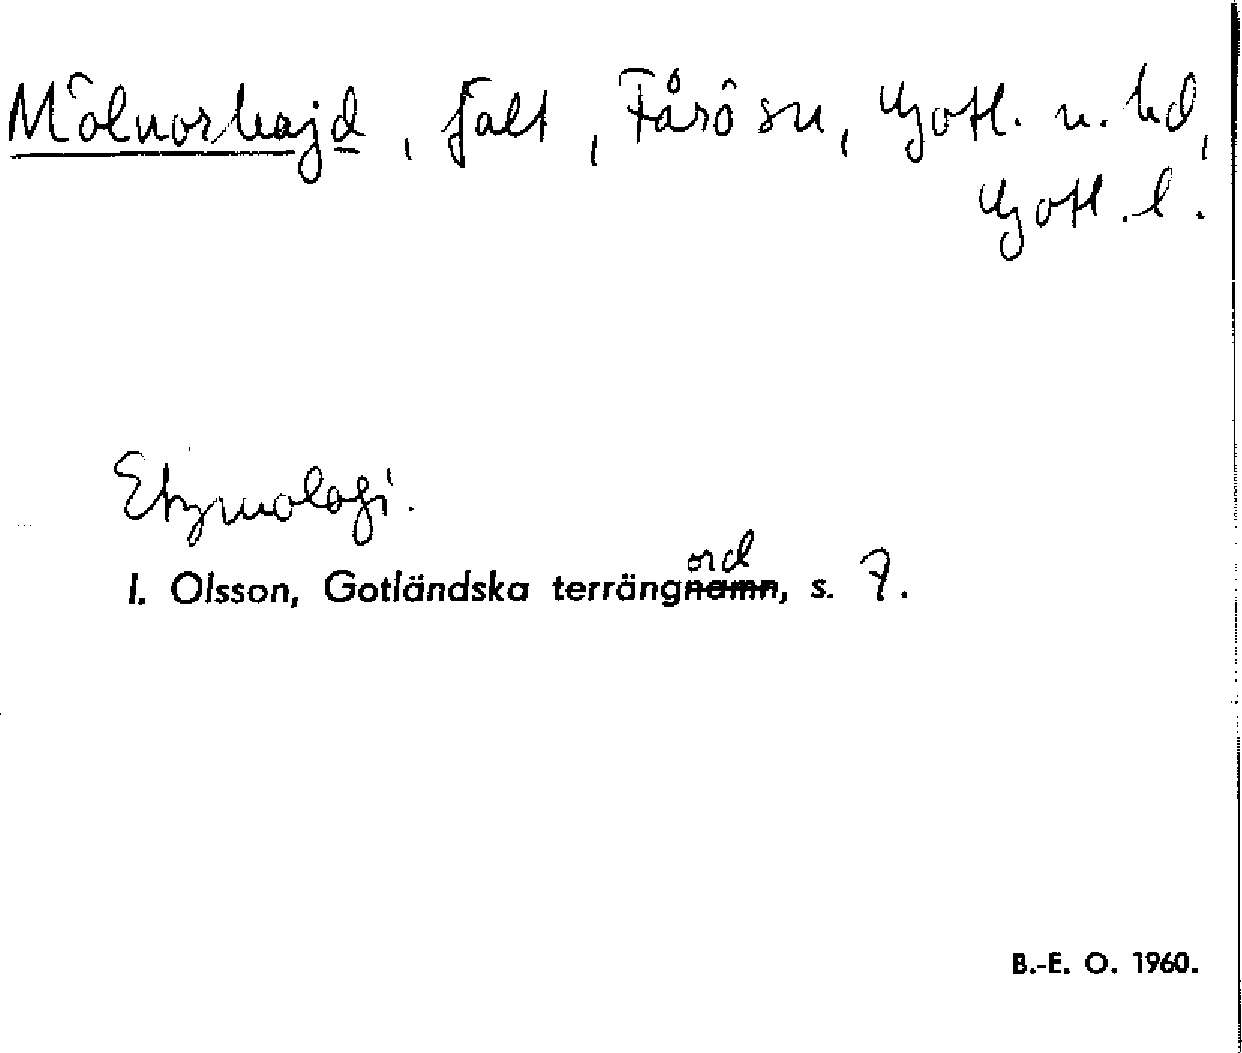 Mölnorhajd, fält, Fårö sn, Gotl. n. hd,
Gotl. l.
Etymologi.
ord
I. Olsson, Gotländska terrängnamn, s. 7.
B.-E. O. 1960.